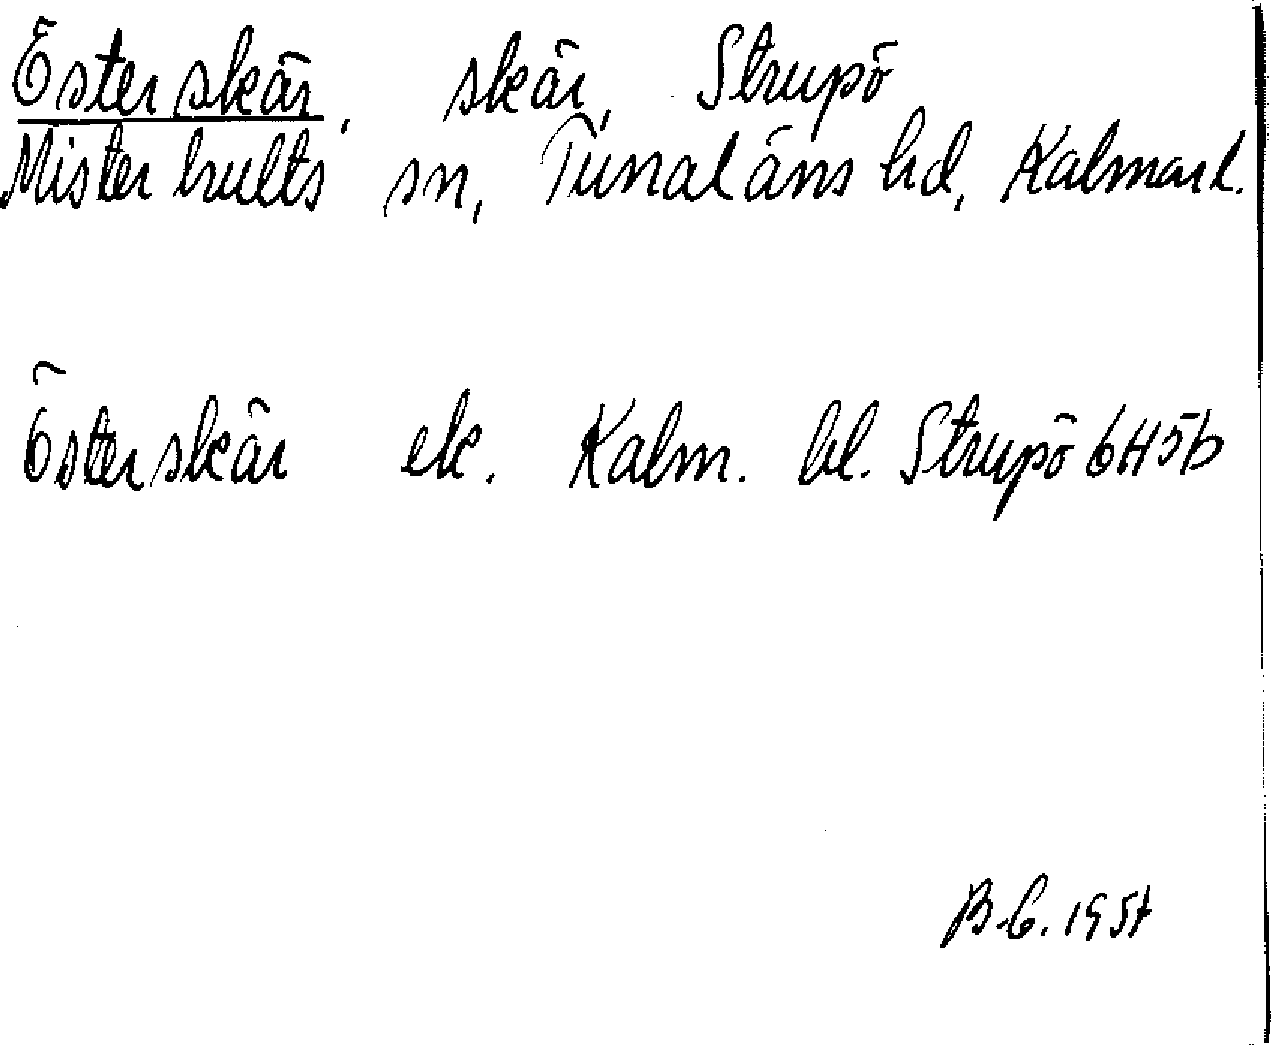 Österskär, skär, Strupö
Misterhults sn, Tunaläns hd, Kalmar l.
Österskär ek. Kalm. bl. Strupö 6H5b